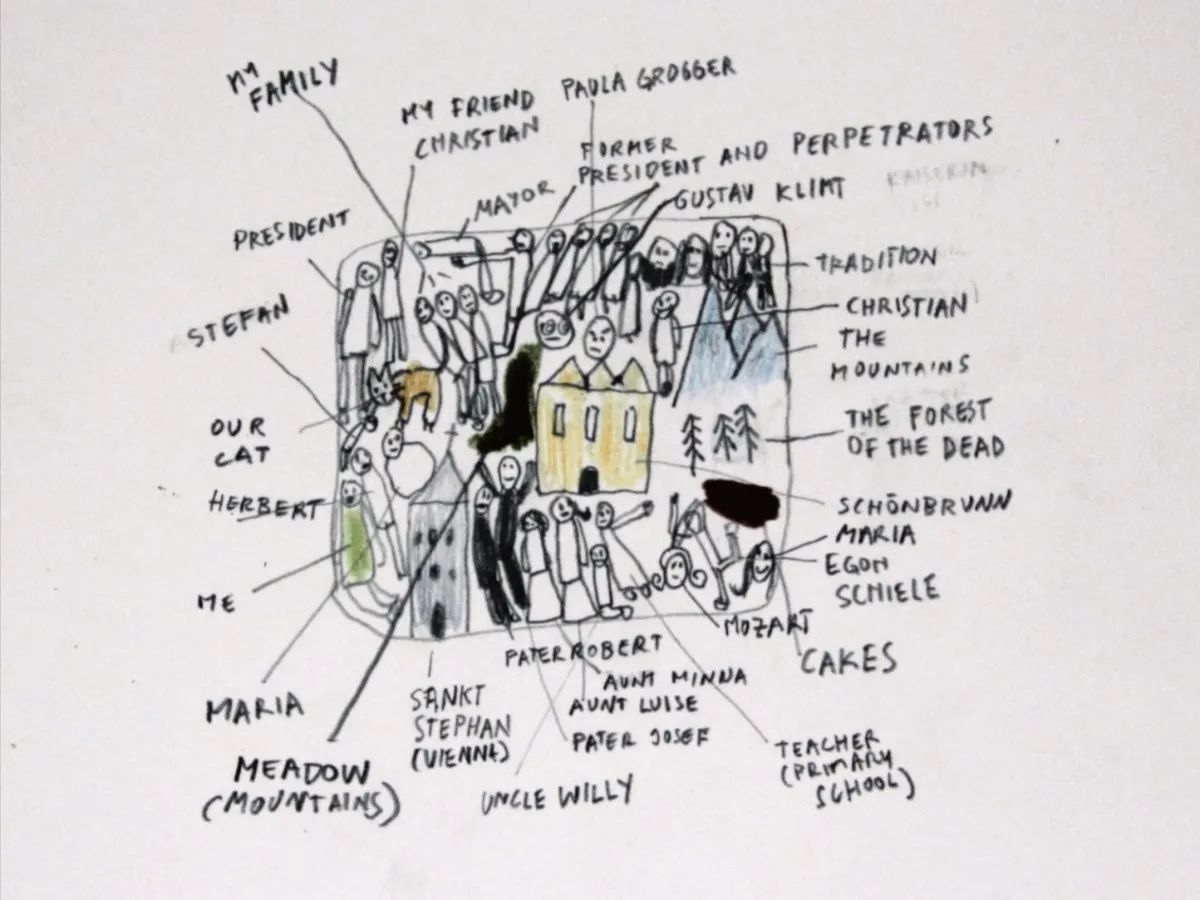 MY
FAMILY
MY FRIEND
CHRISTIAN
PAULA GROGGER
FORMER
PRESIDENT AND PERPETRATORS
MAYOR
GUSTAV KLIMT
KAISERIN
PRESIDENT
TRADITION
STEFAN
CHRISTIAN
THE
MOUNTAINS
OUR
CAT
THE FOREST
OF THE DEAD
HERBERT
SCHÖNBRUNN
MARIA
EGON
SCHIELE
ME
MOZART
CAKES
PATER ROBERT
AUNT MINNA
AUNT LUISE
PATER JOSEF
MARIA
SANKT
STEPHAN
(VIENNA)
TEACHER
(PRIMARY
SCHOOL)
MEADOW
(MOUNTAINS)
UNCLE WILLY